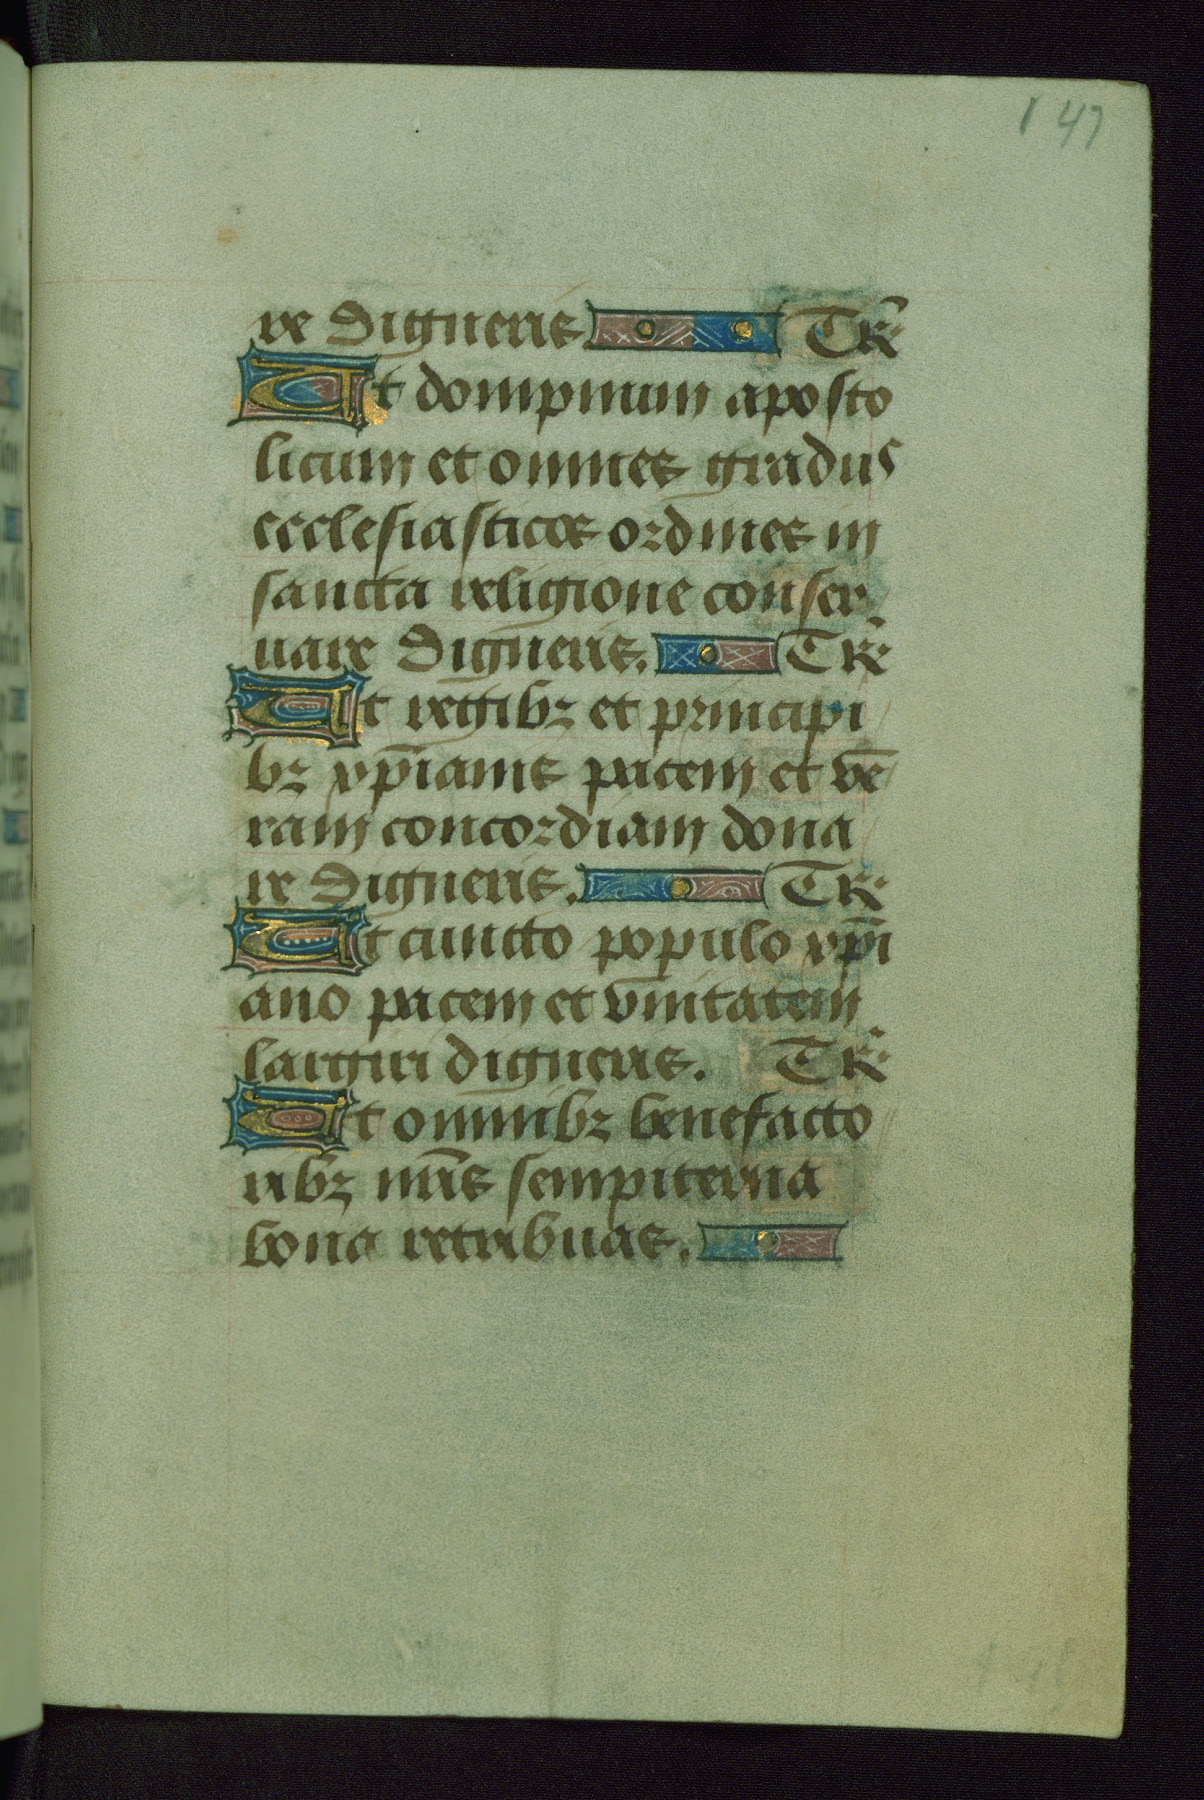 147
re digneris Tr̄
Ut dompnum aposto
licum et omnes gradus
ecclesiasticos ordines in
sancta religione conser
uare digneris. Tr̄
Ut regibꝫ et principi
bꝫ xp̄ianis pacem et ve̅
ram concordiam dona
re digneris. Tr
Ut cuncto populo xp̄i
ano pacem et vnitatem
largiri digneris. Tr̄
Ut omnibꝫ benefacto
ribꝫ nr̄is sempiterna
bona retribuas.